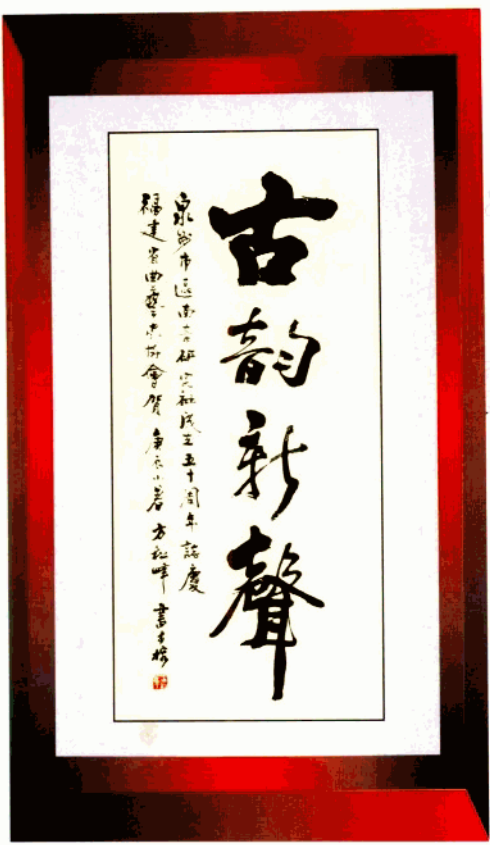 古韵新聲
泉州市區南音研究社成立五十周年誌慶
福建省曲藝家協會賀 庚辰小暑 方紀 書於榕